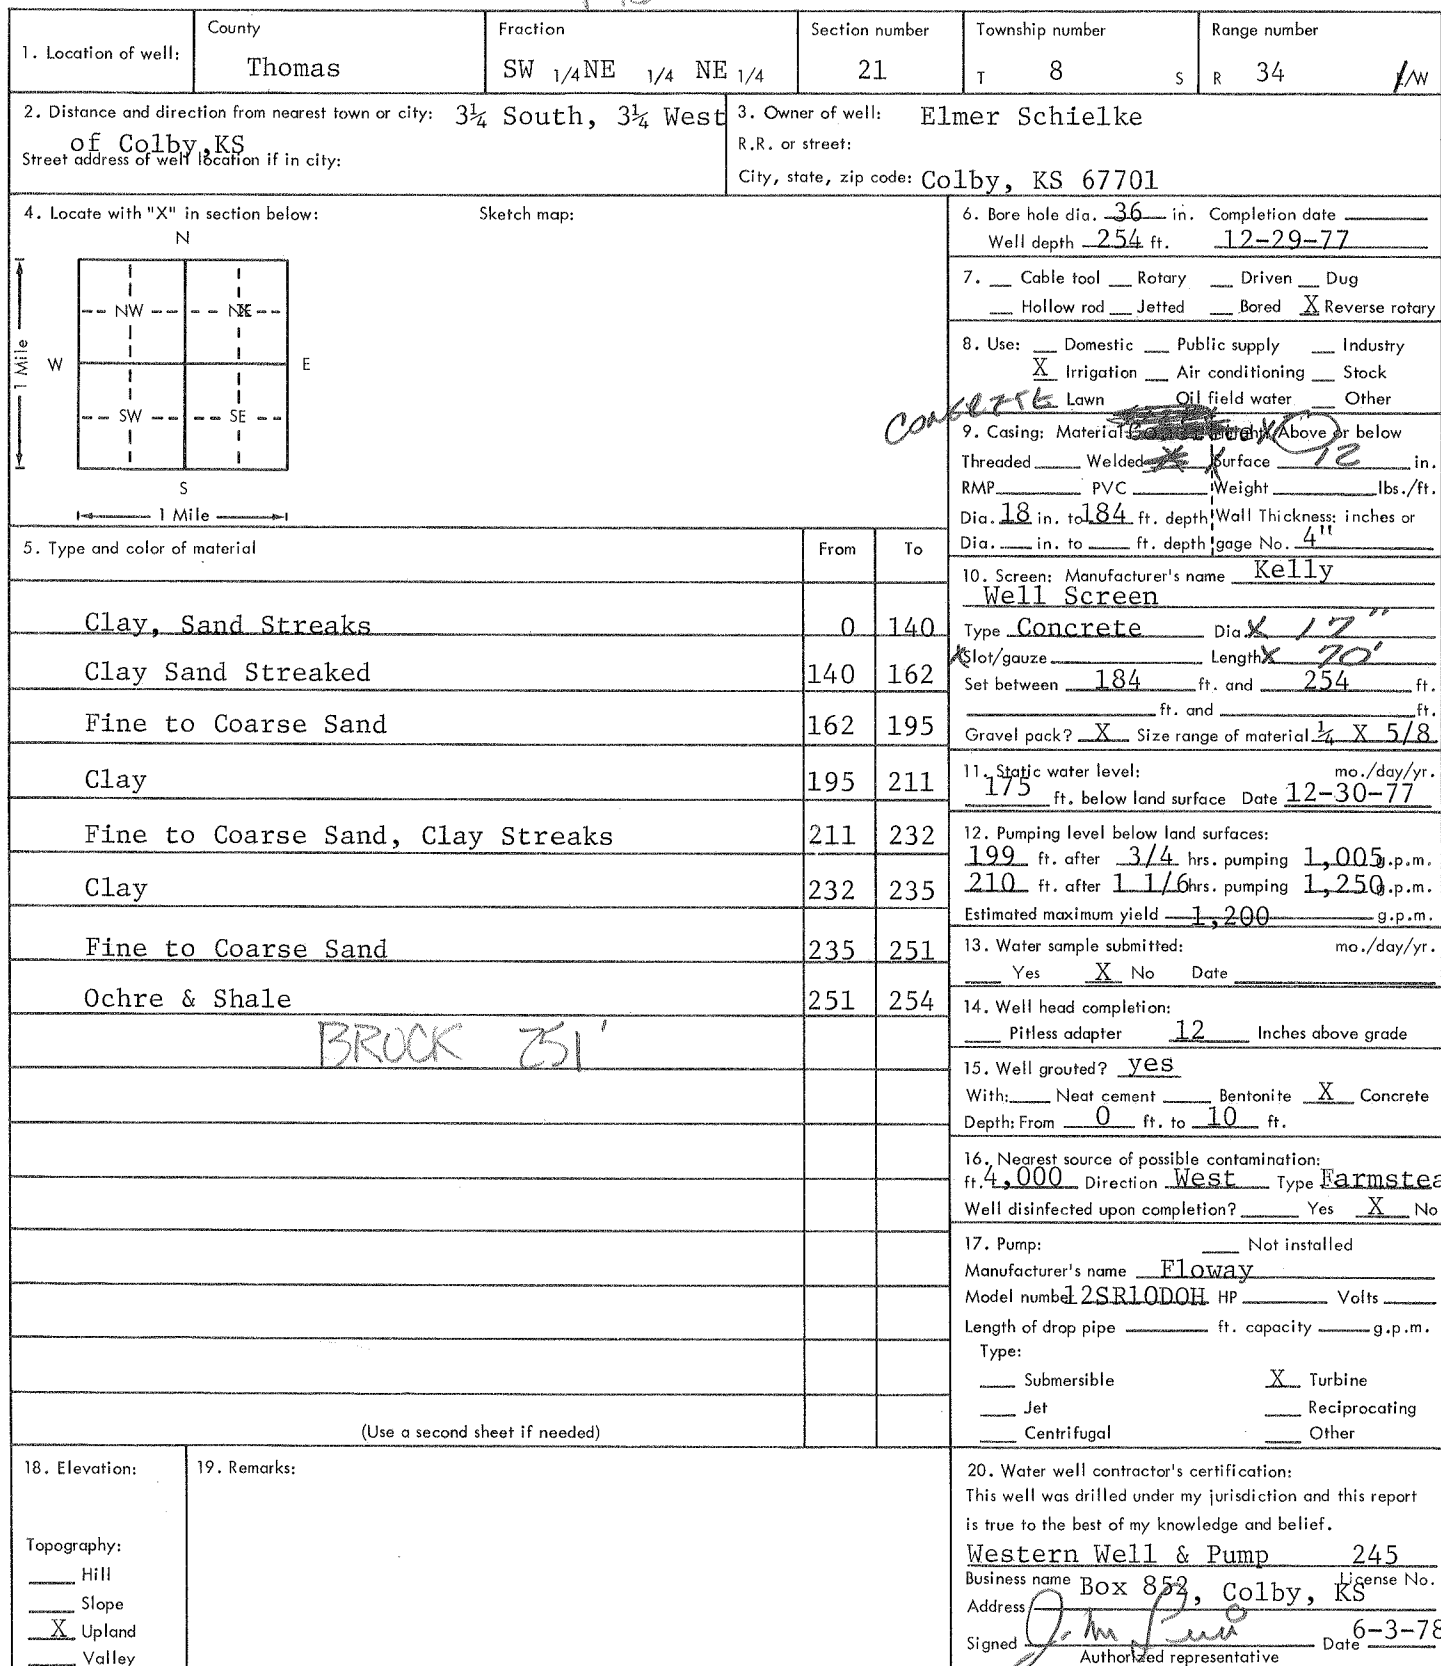 County Fraction Section number Township number Range number
1. Location of well: Thomas SW 1/4 NE 1/4 NE 1/4 21 T 8 S R 34 E/W
2. Distance and direction from nearest town or city: 3¼ South, 3¼ West
of Colby,KS
Street address of well location if in city:
3. Owner of well: Elmer Schielke
R.R. or street:
City, state, zip code: Colby, KS 67701
4. Locate with "X" in section below: Sketch map:
N
NW NE X
W E
1 Mile
SW SE
S
1 Mile
5. Type and color of material From To
Clay, Sand Streaks 0 140
Clay Sand Streaked 140 162
Fine to Coarse Sand 162 195
Clay 195 211
Fine to Coarse Sand, Clay Streaks 211 232
Clay 232 235
Fine to Coarse Sand 235 251
Ochre & Shale 251 254
BROCK 251'
(Use a second sheet if needed)
6. Bore hole dia. 36 in. Completion date
Well depth 254 ft. 12-29-77
7. __ Cable tool __ Rotary __ Driven __ Dug
__ Hollow rod __ Jetted __ Bored X Reverse rotary
8. Use: __ Domestic __ Public supply __ Industry
X Irrigation __ Air conditioning __ Stock
__ Lawn __ Oil field water __ Other
CONCRETE
9. Casing: Material X Above or below
Threaded ___ Welded X X Surface 12 in.
RMP ___ PVC ___ Weight ___ lbs./ft.
Dia. 18 in. to 184 ft. depth Wall Thickness: inches or
Dia. ___ in. to ___ ft. depth gage No. 4"
10. Screen: Manufacturer's name Kelly
Well Screen
Type Concrete Dia X 17"
X Slot/gauze ___ Length X 70'
Set between 184 ft. and 254 ft.
___ ft. and ___ ft.
Gravel pack? X Size range of material ¼ X 5/8
11. Static water level: mo./day/yr.
175 ft. below land surface Date 12-30-77
12. Pumping level below land surfaces:
199 ft. after 3/4 hrs. pumping 1,005 g.p.m.
210 ft. after 1 1/6 hrs. pumping 1,250 g.p.m.
Estimated maximum yield 1,200 g.p.m.
13. Water sample submitted: mo./day/yr.
___ Yes X No Date ___
14. Well head completion:
___ Pitless adapter 12 Inches above grade
15. Well grouted? yes
With: ___ Neat cement ___ Bentonite X Concrete
Depth: From 0 ft. to 10 ft.
16. Nearest source of possible contamination:
ft. 4,000 Direction West Type Farmstea
Well disinfected upon completion? ___ Yes X No
17. Pump: ___ Not installed
Manufacturer's name Floway
Model number 12SR10DOH HP ___ Volts ___
Length of drop pipe ___ ft. capacity ___ g.p.m.
Type:
___ Submersible X Turbine
___ Jet ___ Reciprocating
___ Centrifugal ___ Other
18. Elevation:
Topography:
___ Hill
___ Slope
X Upland
___ Valley
19. Remarks:
20. Water well contractor's certification:
This well was drilled under my jurisdiction and this report
is true to the best of my knowledge and belief.
Western Well & Pump 245
Business name License No.
Address Box 852, Colby, KS
Signed Date 6-3-78
Authorized representative